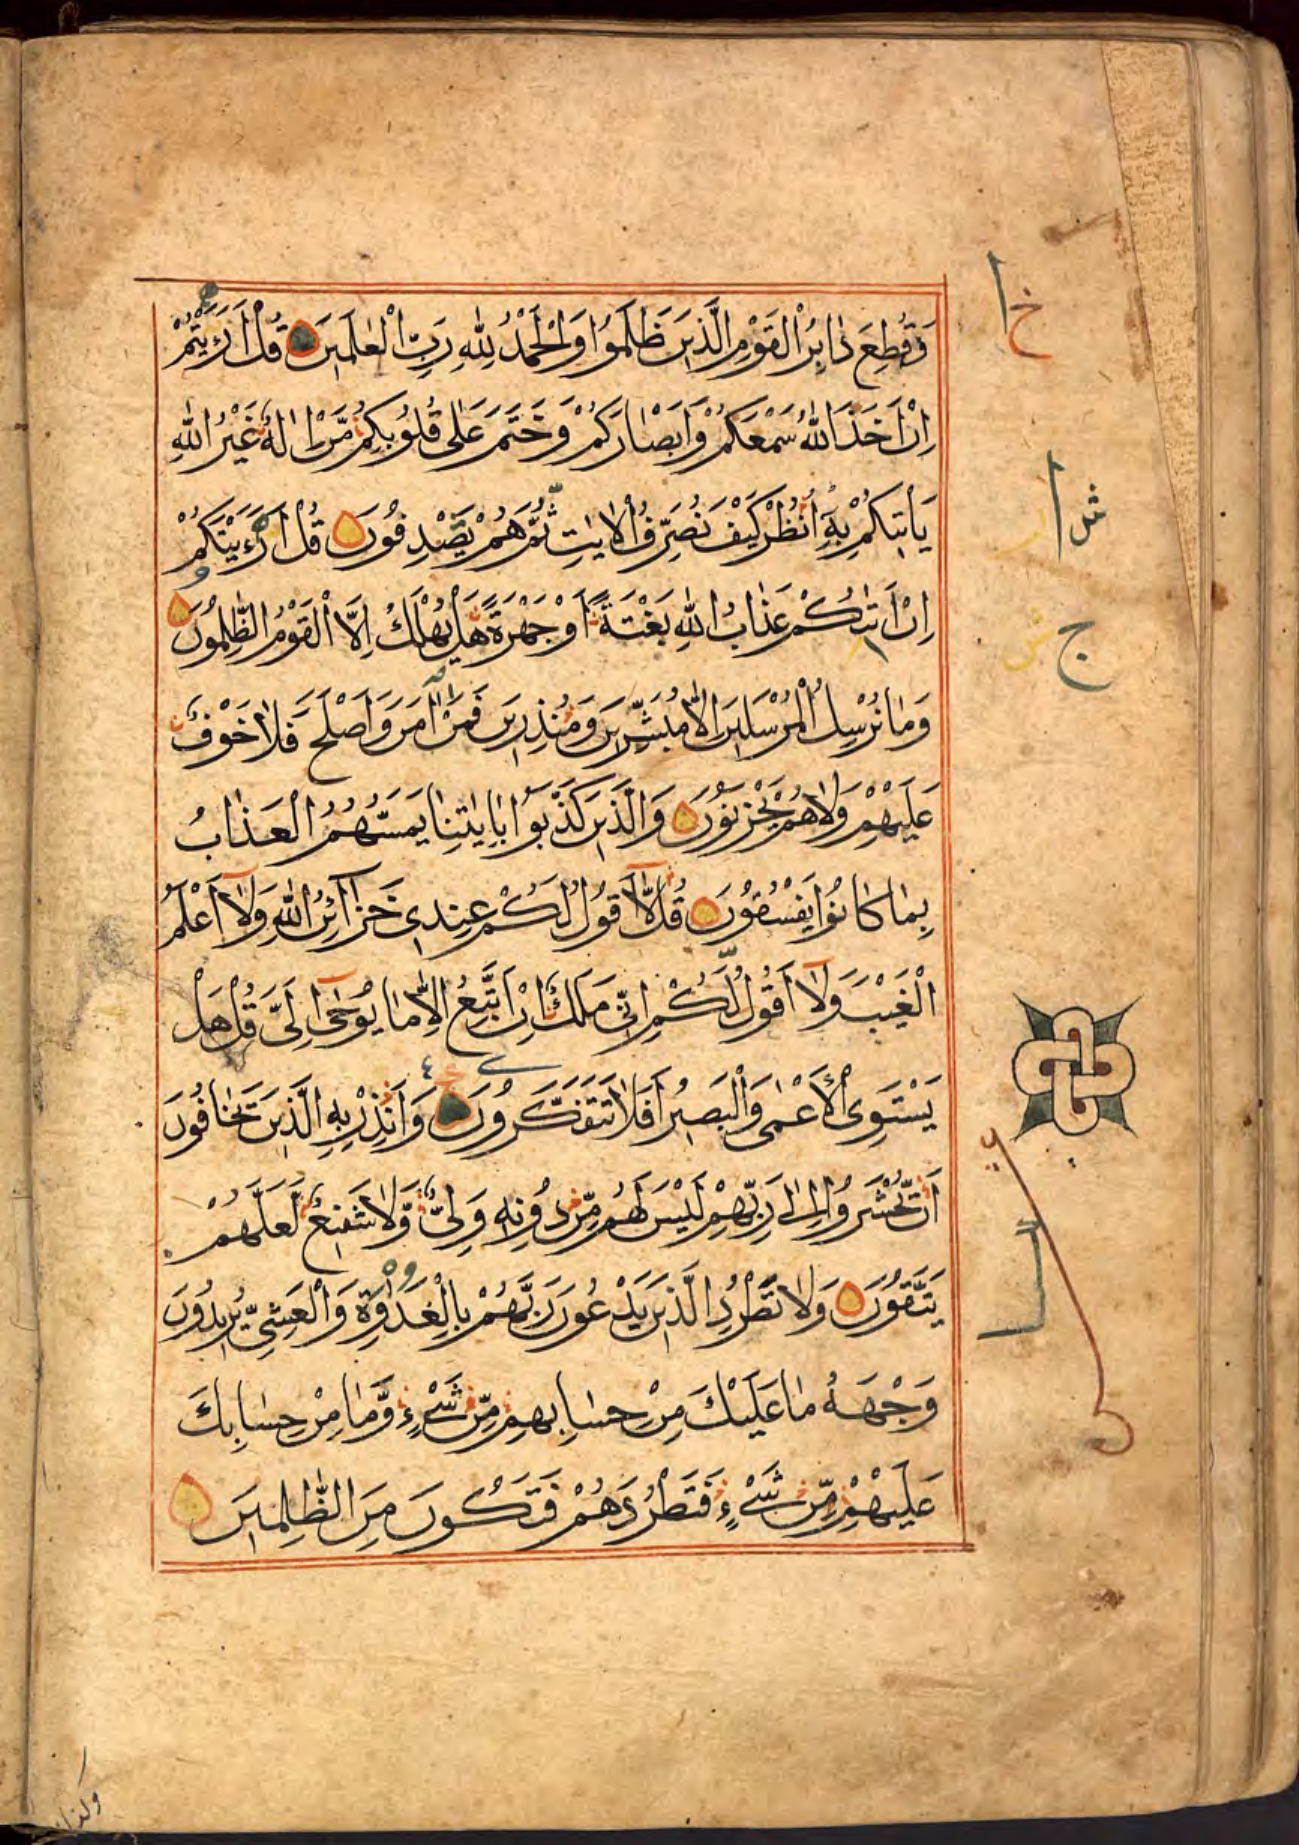 فَقُطِعَ دَابِرُ الْقَوْمِ الَّذِينَ ظَلَمُوا وَالْحَمْدُ لِلّٰهِ رَبِّ الْعٰلَمِينَ قُلْ اَرَءَيْتُمْ
اِنْ اَخَذَ اللّٰهُ سَمْعَكُمْ وَاَبْصَارَكُمْ وَخَتَمَ عَلٰى قُلُوبِكُمْ مَّنْ اِلٰهٌ غَيْرُ اللّٰهِ
يَاْتِيكُمْ بِهِ اُنْظُرْ كَيْفَ نُصَرِّفُ الْاٰيٰتِ ثُمَّ هُمْ يَصْدِفُونَ قُلْ اَرَءَيْتَكُمْ
اِنْ اَتٰىكُمْ عَذَابُ اللّٰهِ بَغْتَةً اَوْ جَهْرَةً هَلْ يُهْلَكُ اِلَّا الْقَوْمُ الظّٰلِمُونَ
وَمَا نُرْسِلُ الْمُرْسَلِينَ اِلَّا مُبَشِّرِينَ وَمُنْذِرِينَ فَمَنْ اٰمَنَ وَاَصْلَحَ فَلَا خَوْفٌ
عَلَيْهِمْ وَلَا هُمْ يَحْزَنُونَ وَالَّذِينَ كَذَّبُوا بِاٰيٰتِنَا يَمَسُّهُمُ الْعَذَابُ
بِمَا كَانُوا يَفْسُقُونَ قُلْ لَّا اَقُولُ لَكُمْ عِنْدِي خَزَآئِنُ اللّٰهِ وَلَا اَعْلَمُ
الْغَيْبَ وَلَا اَقُولُ لَكُمْ اِنِّي مَلَكٌ اِنْ اَتَّبِعُ اِلَّا مَا يُوحٰى اِلَيَّ قُلْ هَلْ
يَسْتَوِي الْاَعْمٰى وَالْبَصِيرُ اَفَلَا تَتَفَكَّرُونَ وَاَنْذِرْ بِهِ الَّذِينَ يَخَافُونَ
اَنْ يُّحْشَرُوا اِلٰى رَبِّهِمْ لَيْسَ لَهُمْ مِّنْ دُونِهِ وَلِيٌّ وَّلَا شَفِيعٌ لَّعَلَّهُمْ
يَتَّقُونَ وَلَا تَطْرُدِ الَّذِينَ يَدْعُونَ رَبَّهُمْ بِالْغَدٰوةِ وَالْعَشِيِّ يُرِيدُونَ
وَجْهَهُ مَا عَلَيْكَ مِنْ حِسَابِهِمْ مِّنْ شَيْءٍ وَّمَا مِنْ حِسَابِكَ
عَلَيْهِمْ مِّنْ شَيْءٍ فَتَطْرُدَهُمْ فَتَكُونَ مِنَ الظّٰلِمِينَ
وكذلك